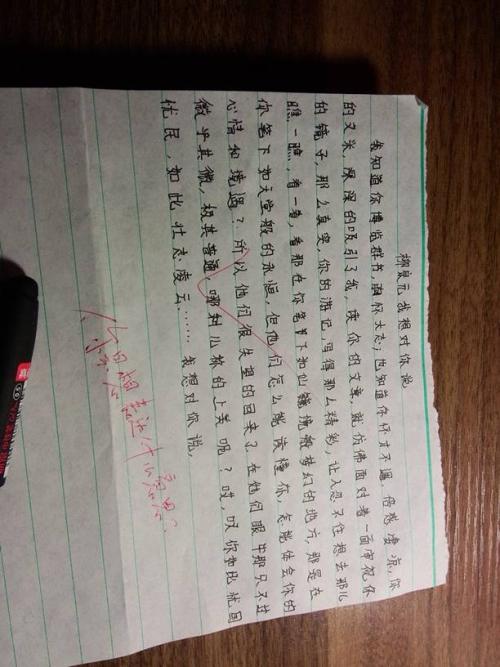 柳泉元我想对你说
我知道你博览群书,胸怀大志;也知道你怀才不遇,倍感凄凉,你
的文采,深深的吸引了我,读你的文章,就仿佛面对着一面审视你
的镜子,那么真实,你的游记,写得那么精彩,让人忍不住想去那儿
瞧一瞧,看一看,看那在你笔下如仙镜境般梦幻的地方,那是在
你笔下如天堂般的永恒,但他们怎么能读懂你,怎能体会你的
心情和境遇?所以他们很失望的回来了,在他们眼中那只不过
微乎其微,极其普通,哪刹儿称的上美呢?哎,叹你如此忧国
忧民,如此壮志凌云……我想对你说,
想表达什么意思?